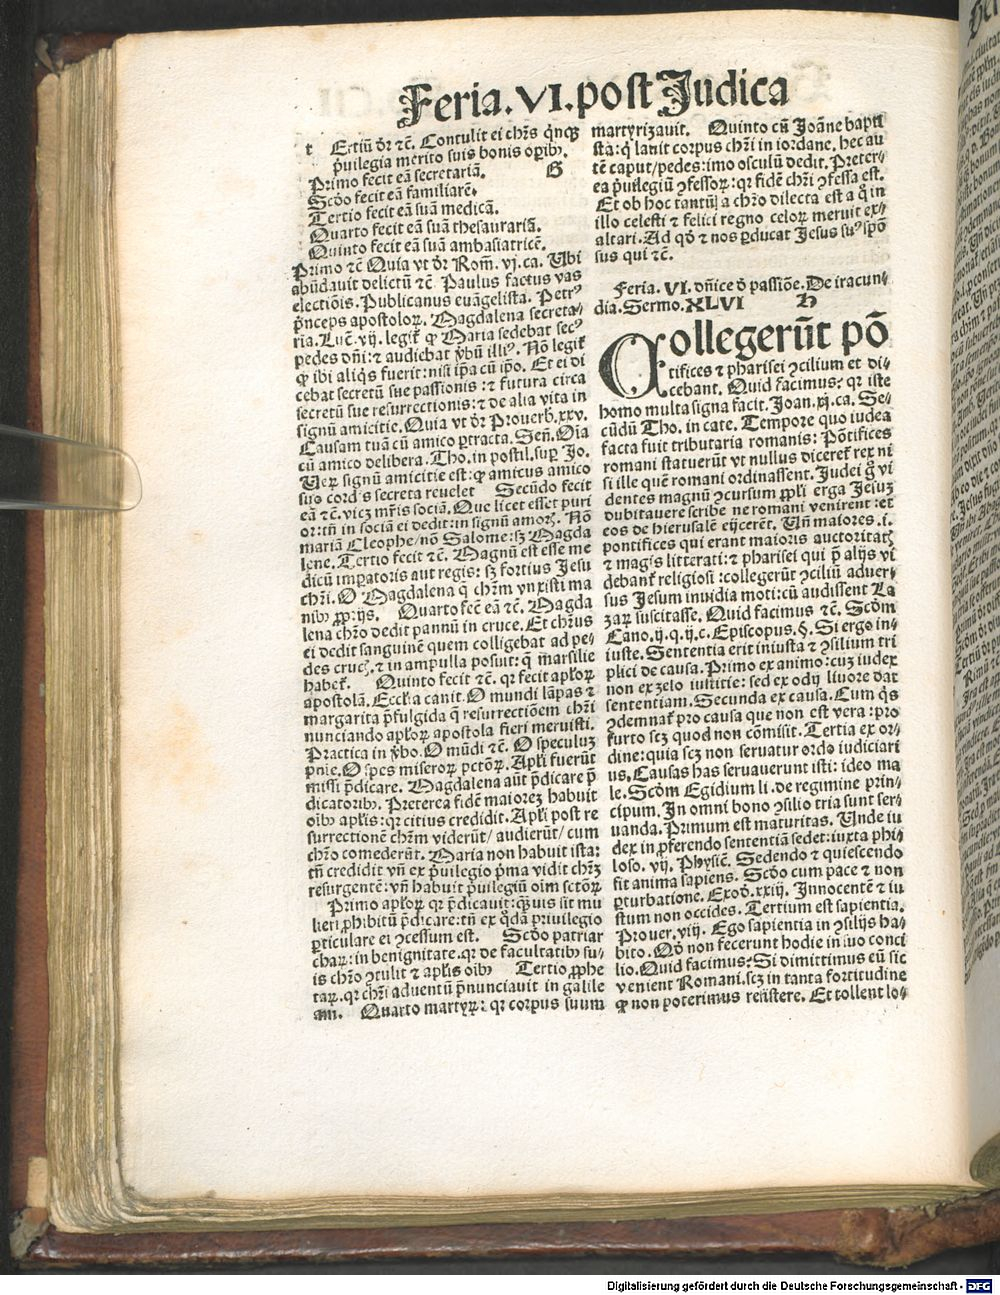 Feria.VI.post Judica
t Ertiū dr̄ ⁊c̄. Contulit ei chr̄s qn̄qꝫ
pͥuilegia merito suis bonis oꝑibꝰ.
Primo fecit eā secretariā. G
Scd̄o fecit eā familiarē.
Tertio fecit eā suā medicā.
Quarto fecit eā suā thesaurariā.
Quinto fecit eā suā ambasiatricē.
Primo ⁊c̄ Quia vt dr̄ Rom̄. vj. ca. Ubi
abūdauit delictū ⁊c̄. Paulus factus vas
electiōis. Publicanus euāgelista. Petrꝰ
pn̄ceps apostoloꝝ. Magdalena secreta⸗
ria. Luc̄. vij. legit᷑ ꝙ Maria sedebat secꝰ
pedes dn̄i: ⁊ audiebat ꝟbū illiꝰ. Nō legit᷑
ꝙ ibi aliqͥs fuerit: nisi ip̄a cū ip̄o. Et ei di
cebat secretū sue passionis : ⁊ futura circa
secretū sue resurrectionis: ⁊ de alia vita in
signū amicitie. Quia vt dr̄ Prouerb̄. xxv.
Causam tuā cū amico ꝑtracta. Sen̄. Oīa
cū amico delibera. Tho. in postil. suꝑ Jo.
Ueꝝ signū amicitie est: ꝙ amicus amico
suo cordis secreta reuelet Secūdo fecit
eā ⁊c̄. vicꝫ mr̄is sociā. Que licet esset puri
or: tn̄ in sociā ei dedit: in signū amorꝭ. Nō
mariā Cleophe/ nō Salome: sꝫ Magda
lene. Tertio fecit ⁊c̄. Magnū est esse me
dicū imꝑatoris aut regis: sꝫ fortius Jesu
chr̄i. O Magdalena q̄ chr̄m vnxisti ma
nibꝰ ꝓpͥijs. Quarto fec̄ eā ⁊c̄. Magda
lena chr̄o dedit pannū in cruce. Et chr̄us
ei dedit sanguinē quem colligebat ad pe⸗
des crucꝭ. ⁊ in ampulla posuit: q̄ marsilie
habet᷑. Quinto fecit ⁊c̄. qꝛ fecit ap̄loꝝ
apostolā. Eccl̄ia canit. O mundi lāpas ⁊
margarita p̄fulgida q̄ resurrectiōem chr̄i
nunciando ap̄loꝝ apostola fieri meruisti.
Practica in ꝟbo. O mūdi ⁊c̄. O speculuꝫ
pn̄ie. O spes miseroꝝ petōꝝ. Apl̄i fuerūt
missi p̄dicare. Magdalena aūt p̄dicare p̄
dicatoribꝰ. Preterea fidē maiorez habuit
oībꝰ ap̄lis: qꝛ citius credidit. Apl̄i post re
surrectionē chr̄m viderūt/ audierūt/ cum
chr̄o comederūt. Maria non habuit ista:
tn̄ credidit vn̄ ex pͥuilegio pͥma vidit chr̄ꝫ
resurgentē: vn̄ habuit pͥuilegiū oīm sctōꝝ
Primo ap̄loꝝ qꝛ p̄dicauit: qͣꝫuis sit mu
lieri ꝓhibitū p̄dicare: tn̄ ex qͦdā priuilegio
ꝑticulare ei ꝯcessum est. Scd̄o patriar
chaꝝ: in benignitate. qꝛ de facultatibꝰ su⸗
is chr̄o ꝯtulit ⁊ ap̄lis oībꝰ Tertio ꝓphe
taꝝ. qꝛ chr̄i aduentū p̄nunciauit in galile
am. Quarto martyꝝ: qꝛ corpus suum
martyrizauit. Quinto cū Joāne bapti
sta: qͥ lauit corpus chr̄i in iordane. hec au
tē caput/ pedes: imo osculū dedit. Preter⸗
ea pͥuilegiū ꝯfessoꝝ: qꝛ fidē chr̄i ꝯfessa est.
Et ob hoc tantū a chr̄o dilecta est a qͦ in
illo celesti ⁊ felici regno celoꝝ meruit ex⸗
altari. Ad qd̄ ⁊ nos ꝑducat Jesus suꝰ spō
sus qui ⁊c̄.
Feria. VI. dn̄ice d̄ passiōe. De iracun⸗
dia. Sermo. XLVI h
Collegerūt pō
tifices ⁊ pharisei ꝯcilium et di⸗
cebant. Quid facimus: qꝛ iste
homo multa signa facit. Joan. xj. ca. Se⸗
cūdū Tho. in cate. Tempore quo iudea
facta fuit tributaria romanis: Pōtifices
romani statuerūt vt nullus diceret᷑ rex ni
si ille quē romani ordinassent. Judei g̊ vi
dentes magnū ꝯcursum pp̄li erga Jesuꝫ
dubitauere scribe ne romani venirent : et
eos de hierusalē eijcerēt. Un̄ maiores .i.
pontifices qui erant maioris auctoritatꝭ
⁊ magis litterati: ⁊ pharisei qui p̄ alijs vi
debant᷑ religiosi : collegerūt ꝯciliū aduer⸗
sus Jesum inuidia moti: cū audissent La
zaꝝ suscitasse. Quid facimus ⁊c̄. Scd̄m
Cano. ij. q. ij. c. Episcopus. §. Si ergo in⸗
iuste. Sententia erit iniusta ⁊ ꝯsilium tri
plici de causa. Primo ex animo: cuꝫ iudex
non ex zelo iustitie: sed ex odij liuore dat
sententiam. Secunda ex causa. Cum qͥs
ꝯdemnat᷑ pro causa que non est vera : pro
furto scꝫ quod non cōmisit. Tertia ex or⸗
dine: quia scꝫ non seruatur ordo iudiciari
us. Causas has seruauerunt isti: ideo ma
le. Scd̄m Egidium li. de regimine prin⸗
cipum. In omni bono ꝯsilio tria sunt ser⸗
uanda. Primum est maturitas. Unde iu
dex in ꝓferendo sententiā sedet: iuxta phi
loso. vij. Physic̄. Sedendo ⁊ quiescendo
fit anima sapiens. Scd̄o cum pace ⁊ non
ꝑturbatione. Exod̄. xxiij. Innocentē ⁊ iu
stum non occides. Tertium est sapientia.
Prouer. viij. Ego sapientia in ꝯsilijs ha⸗
bito. Qd̄ non fecerunt hodie in suo conci
lio. Quid facimus? Si dimittimus eū sic
venient Romani. scꝫ in tanta fortitudine
ꝙ non poterimus resistere. Et tollent lo⸗
Digitalisierung gefördert durch die Deutsche Forschungsgemeinschaft - DFG